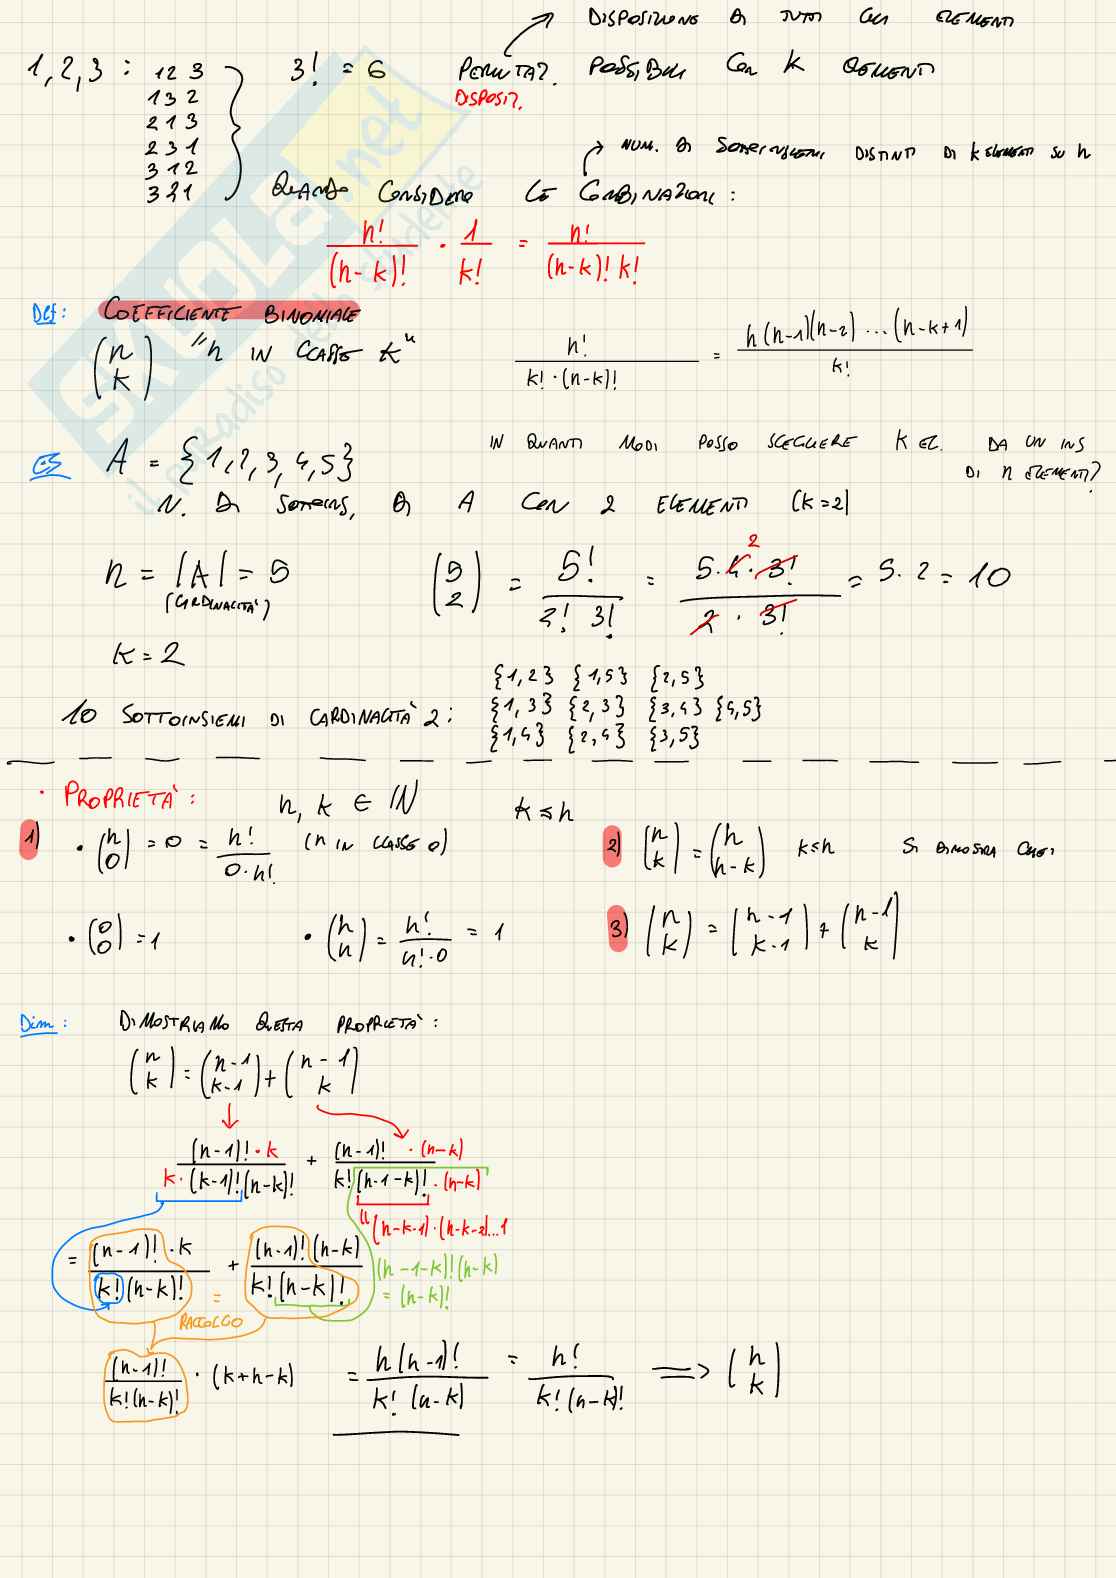 DISPOSIZIONE DI TUTTI GLI ELEMENTI
1, 2, 3 : 1 2 3 3! = 6 PERMUTAZ. POSSIBILI CON K ELEMENTI
1 3 2 DISPOSIZ.
2 1 3
2 3 1 NUM. DI SOTTOINSIEMI DISTINTI DI K ELEMENTI SU n
3 1 2
3 2 1 QUANDO CONSIDERO LE COMBINAZIONI :
n!/(n-k)! · 1/k! = n!/((n-k)! k!)
Def: COEFFICIENTE BINOMIALE
(n k) "n IN CLASSE K" n!/(k! · (n-k)!) = n(n-1)(n-2) ... (n-k+1)/k!
ES A = {1,2,3,4,5} IN QUANTI MODI POSSO SCEGLIERE K EL. DA UN INS
DI n ELEMENTI?
N. DI SOTTOINS. DI A CON 2 ELEMENTI (K=2)
n = |A| = 5 (5 2) = 5!/(2! 3!) = 5·4·3!/(2·3!) = 5·2 = 10
2
(CARDINALITÀ)
K = 2
{1,2} {1,5} {2,5}
10 SOTTOINSIEMI DI CARDINALITÀ 2: {1,3} {2,3} {3,4} {4,5}
{1,4} {2,4} {3,5}
· PROPRIETÀ : n, k ∈ ℕ K ≤ n
1) · (n 0) = 0 = n!/(0·n!) (n IN CLASSE 0) 2) (n k) = (n n-k) k≤n SI DIMOSTRA CHE:
· (0 0) = 1 · (n n) = n!/(n!·0) = 1 3) (n k) = (n-1 k-1) + (n-1 k)
Dim: DIMOSTRIAMO QUESTA PROPRIETÀ :
(n k) = (n-1 k-1) + (n-1 k)
(n-1)! · k/(k·(k-1)!(n-k)!) + (n-1)! · (n-k)/(k!(n-1-k)! · (n-k))
"(n-k-1)·(n-k-2)...1
= (n-1)! · k/(k!(n-k)!) + (n-1)!(n-k)/(k!(n-k)!) (n-1-k)!(n-k)
= (n-k)!
= RACCOLGO
(n-1)!/(k!(n-k)!) · (k+n-k) = n(n-1)!/(k! (n-k) = n!/(k!(n-k)!) ⟹ (n k)
SKUOLA.net
il paradiso dello studente